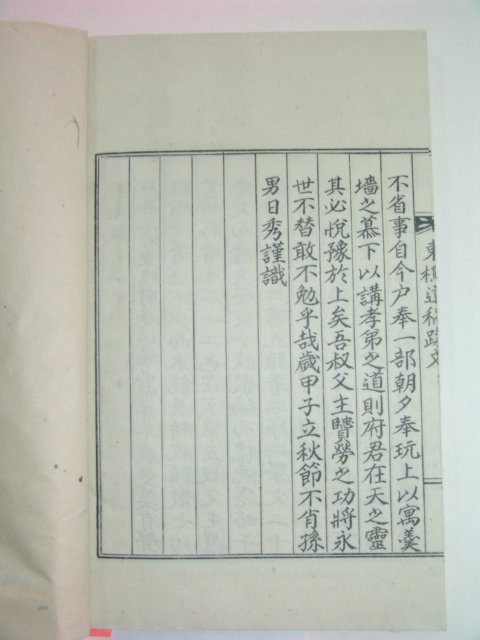 東樵遺稿跋文
不省事自今户奉一部朝夕奉玩上以寓羹
墻之慕下以講孝弟之道則府君在天之靈
其必悅豫於上矣吾叔父主賷勞之功將永
世不替敢不勉乎哉歲甲子立秋節不肖孫
男日秀謹識